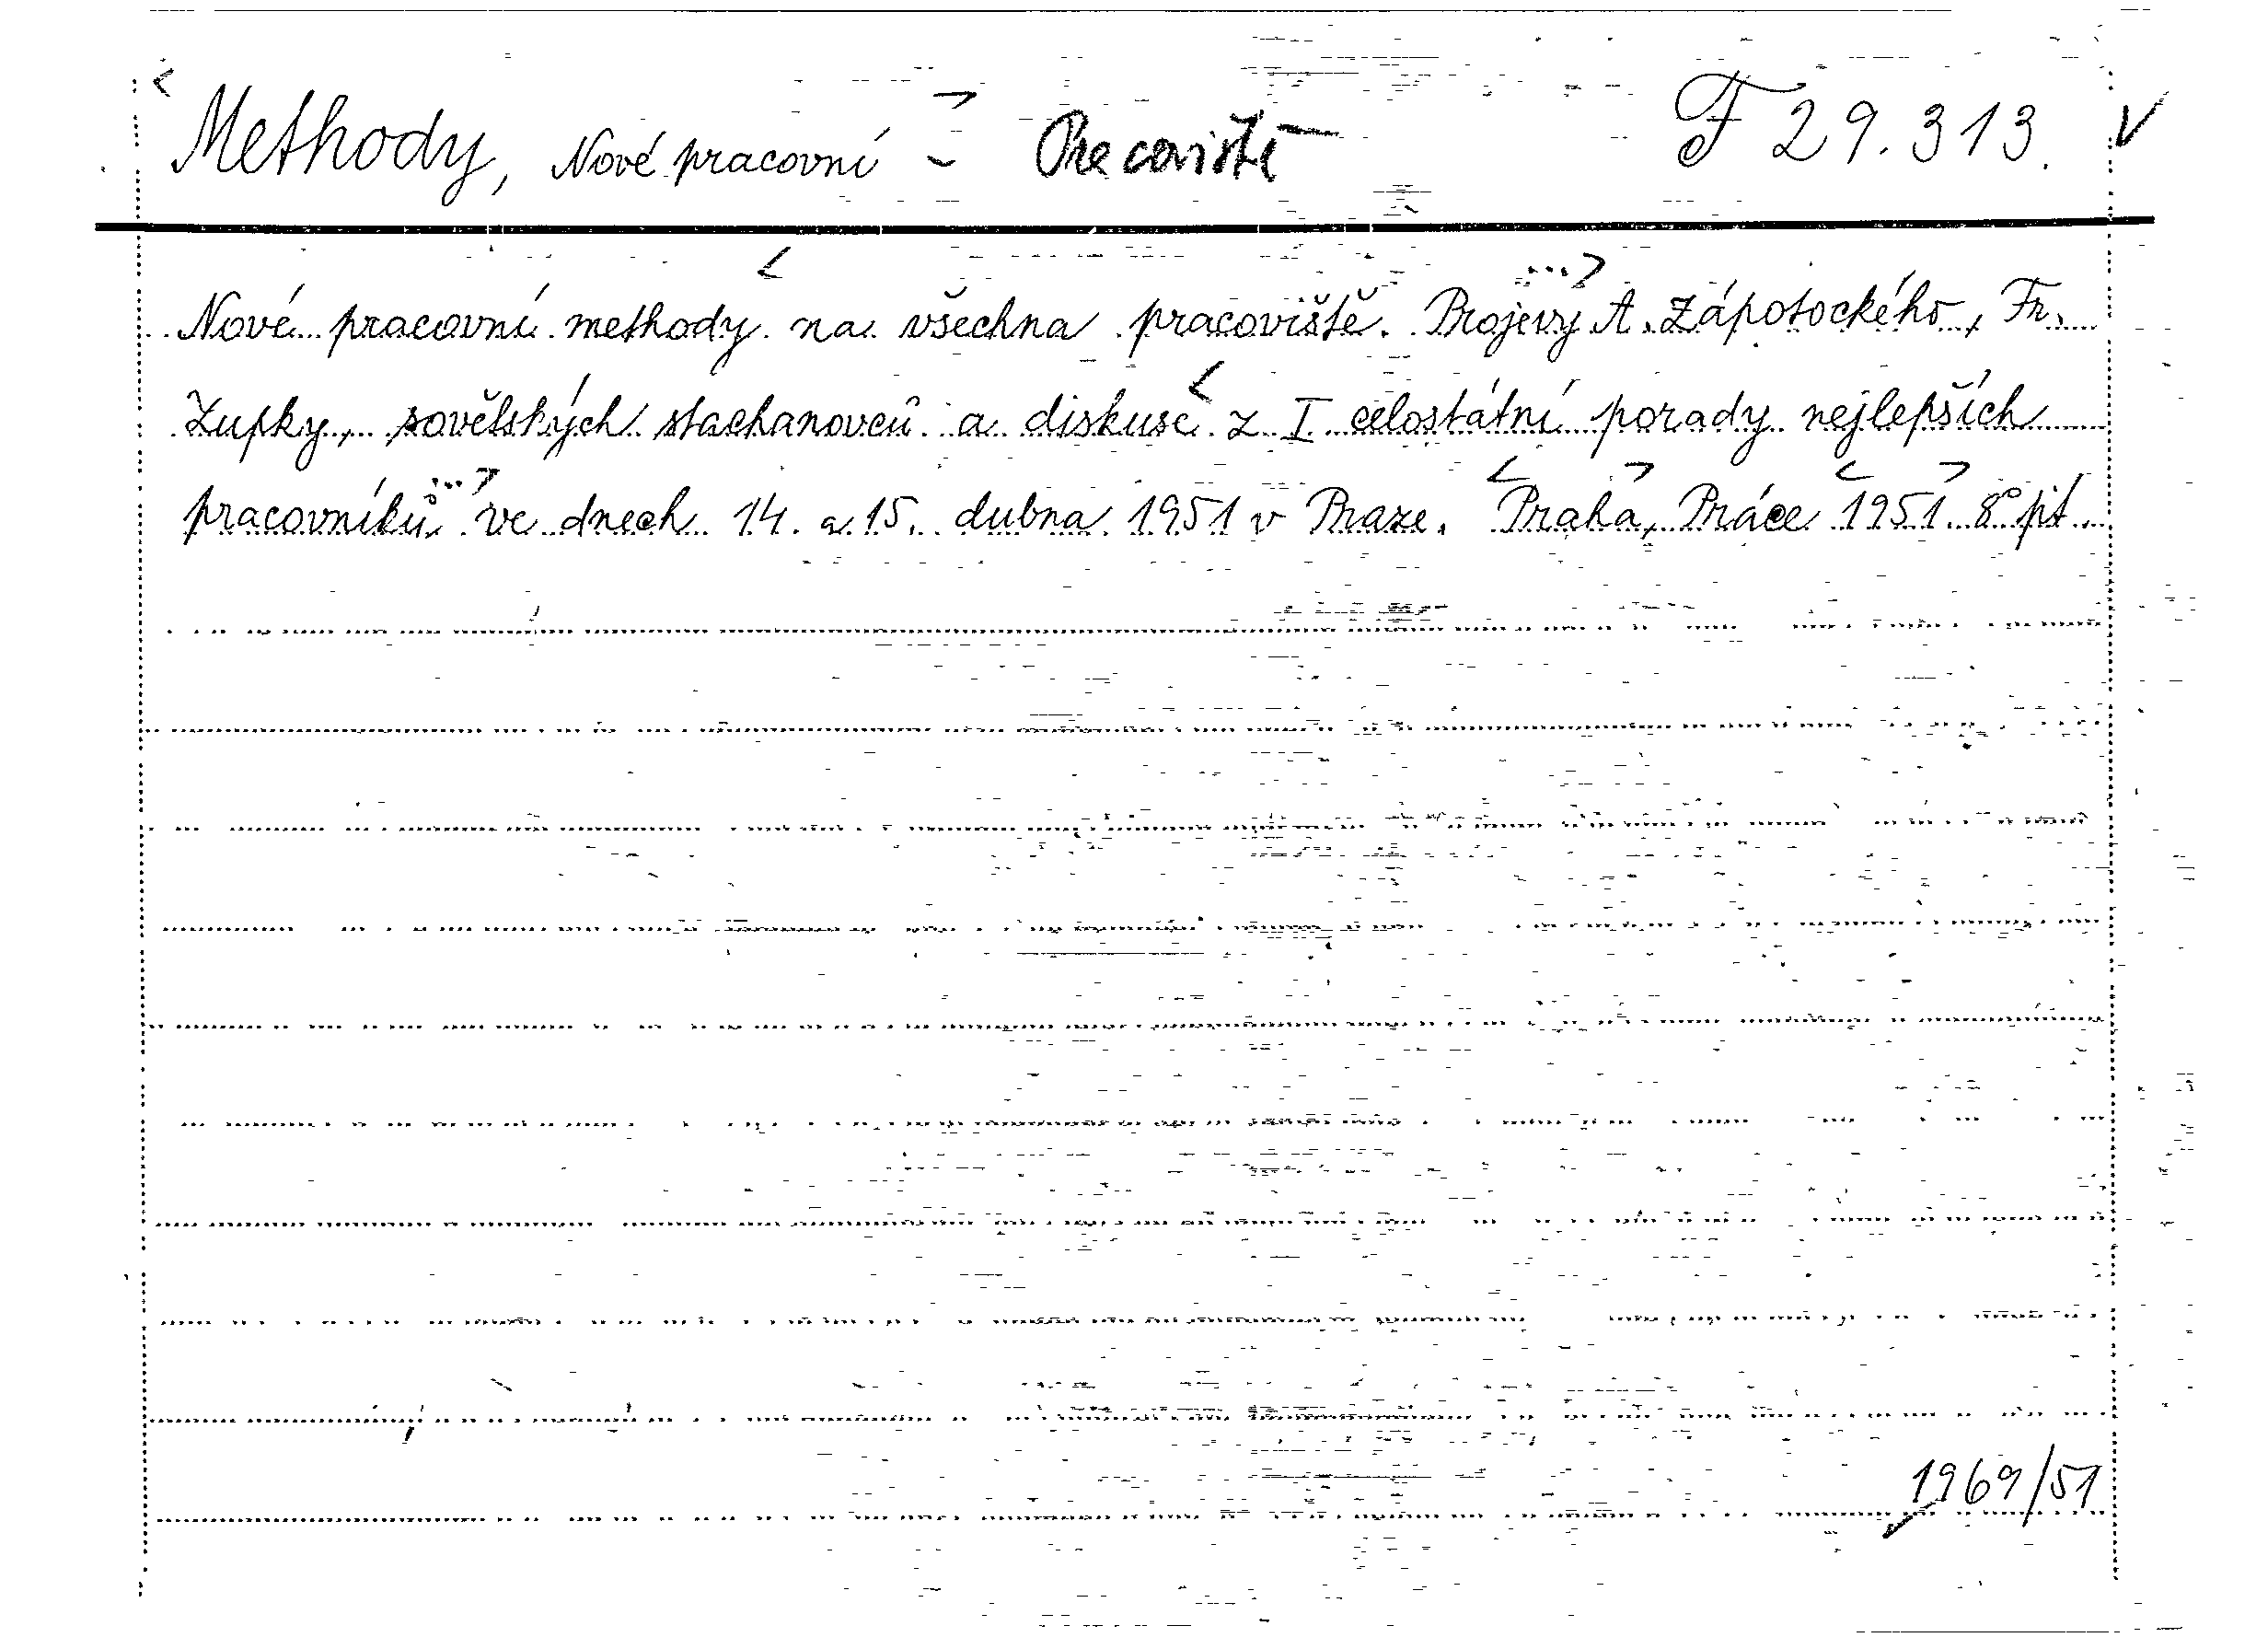 Methody, Nové pracovní - Pracoviště F 29.313.
Nové pracovní methody na všechna pracoviště. Projevy A. Zápotockého, Fr.
Zupky, sovětských stachanovců a diskuse z I celostátní porady nejlepších
pracovníků ve dnech 14. a 15. dubna 1951 v Praze. Praha, Práce 1951. 8° přt.
1969/51